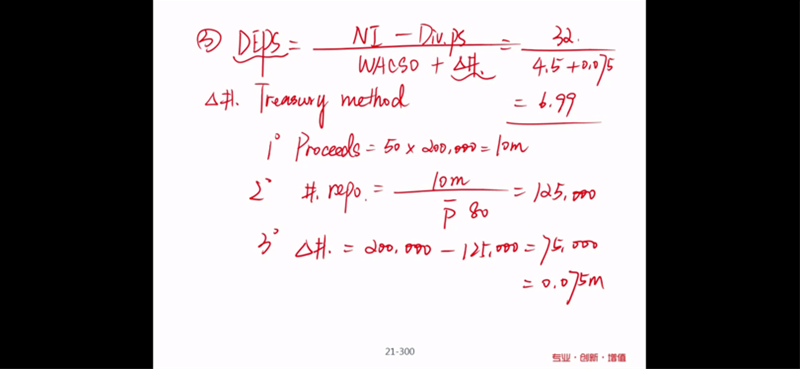 ③ DEPS = (NI - Div.ps) / (WACSO + Δ#.) = 32. / (4.5 + 0.075)
Δ#. Treasury method = 6.99
1° Proceeds = 50 × 200,000 = 10m
2° #. repo. = 10m / P̄ 80 = 125,000
3° Δ#. = 200,000 - 125,000 = 75,000
= 0.075m
21-300
专业·创新·增值